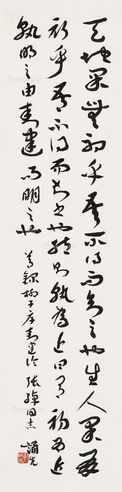 天地果無初乎吾不得而知之也生人果有
初乎吾不得而知之也然則孰為近曰有初為近
孰明之由封建而明之也
節錄柳子厚封建論 張 同志